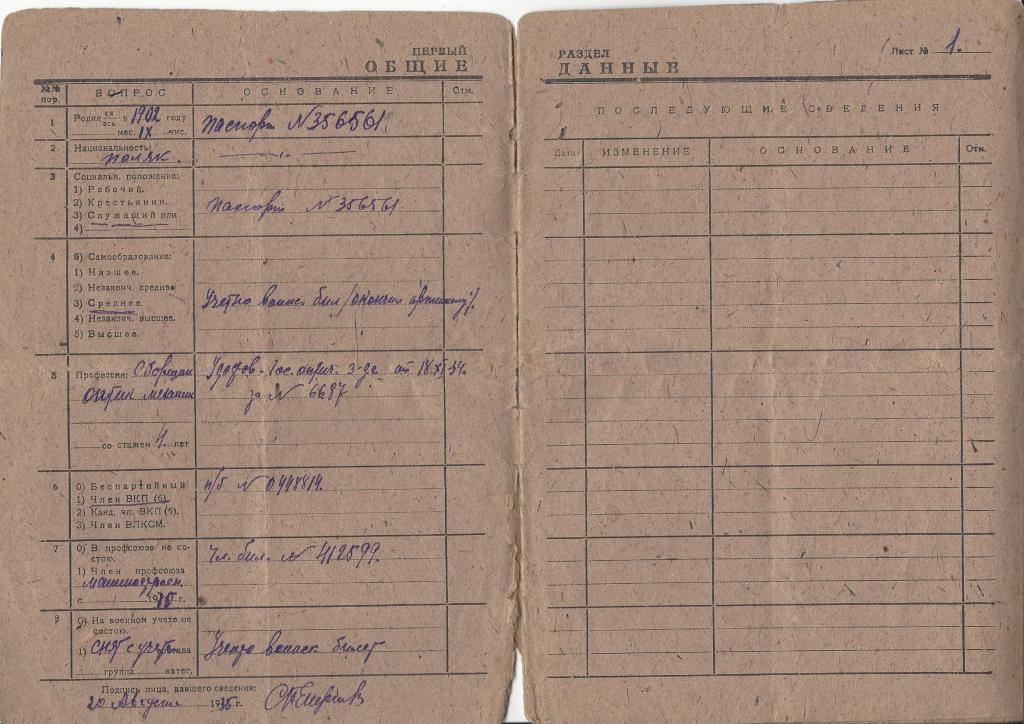 ПЕРВЫЙ
ОБЩИЕ
№№ пор. ВОПРОС ОСНОВАНИЕ Отм.
1 Родил ся ась в 1902 году
мес. IX чис.
паспорт № 356561.
2 Национальность:
поляк.
3 Социальн. положение:
1) Рабочий.
2) Крестьянин.
3) Служащий или
4)
паспорт № 356561.
4 0) Самообразование:
1) Низшее.
2) Незаконч. среднее
3) Среднее.
4) Незаконч. высшее.
5) Высшее.
Учетно воинс бил
5 Профессия: Сборщик
оптик механик
со стажем 4. лет
от 18 XI-34.
за № 6687
6 0) Беспартийный
1) Член ВКП (б).
2) Канд. чл. ВКП (б).
3) Член ВЛКСМ.
п/б №
7 0) В профсоюзе не со-
стою.
1) Член профсоюза
машиностроен.
с 19 г.
Чл. бил. № 412599.
8 0) На военном учете не
состою.
1) снят с учета
группа катег.
Учетно воинск билет
Подпись лица, давшего сведения:
20 Августа 1935 г.
РАЗДЕЛ
ДАННЫЕ
Лист № 1.
ПОСЛЕДУЮЩИЕ СВЕДЕНИЯ
Дата ИЗМЕНЕНИЕ ОСНОВАНИЕ Отм.